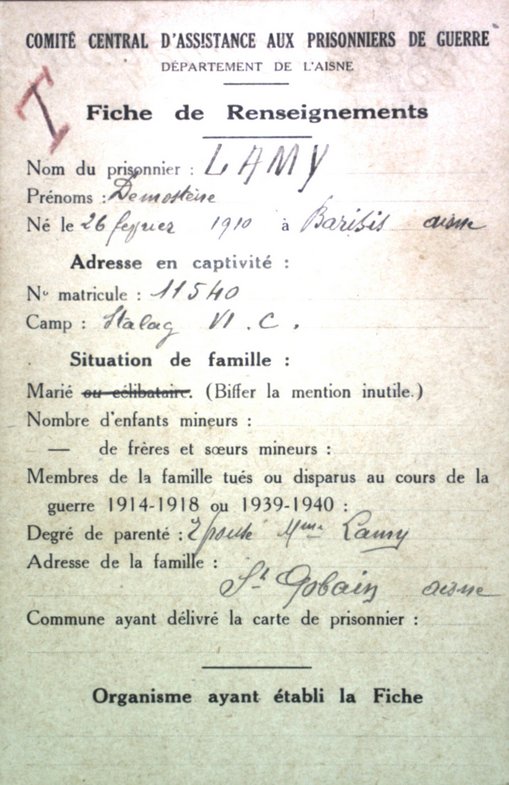 COMITÉ CENTRAL D'ASSISTANCE AUX PRISONNIERS DE GUERRE
DÉPARTEMENT DE L'AISNE
I
Fiche de Renseignements
Nom du prisonnier : LAMY
Prénoms : Demostène
Né le 26 fevrier 1910 à Barisis aisne
Adresse en captivité :
No matricule : 11540
Camp : Stalag VI. C.
Situation de famille :
Marié ou célibataire. (Biffer la mention inutile.)
Nombre d'enfants mineurs :
— de frères et sœurs mineurs :
Membres de la famille tués ou disparus au cours de la
guerre 1914-1918 ou 1939-1940 :
Degré de parenté : Epouse Mme Lamy
Adresse de la famille :
St Gobain aisne
Commune ayant délivré la carte de prisonnier :
Organisme ayant établi la Fiche